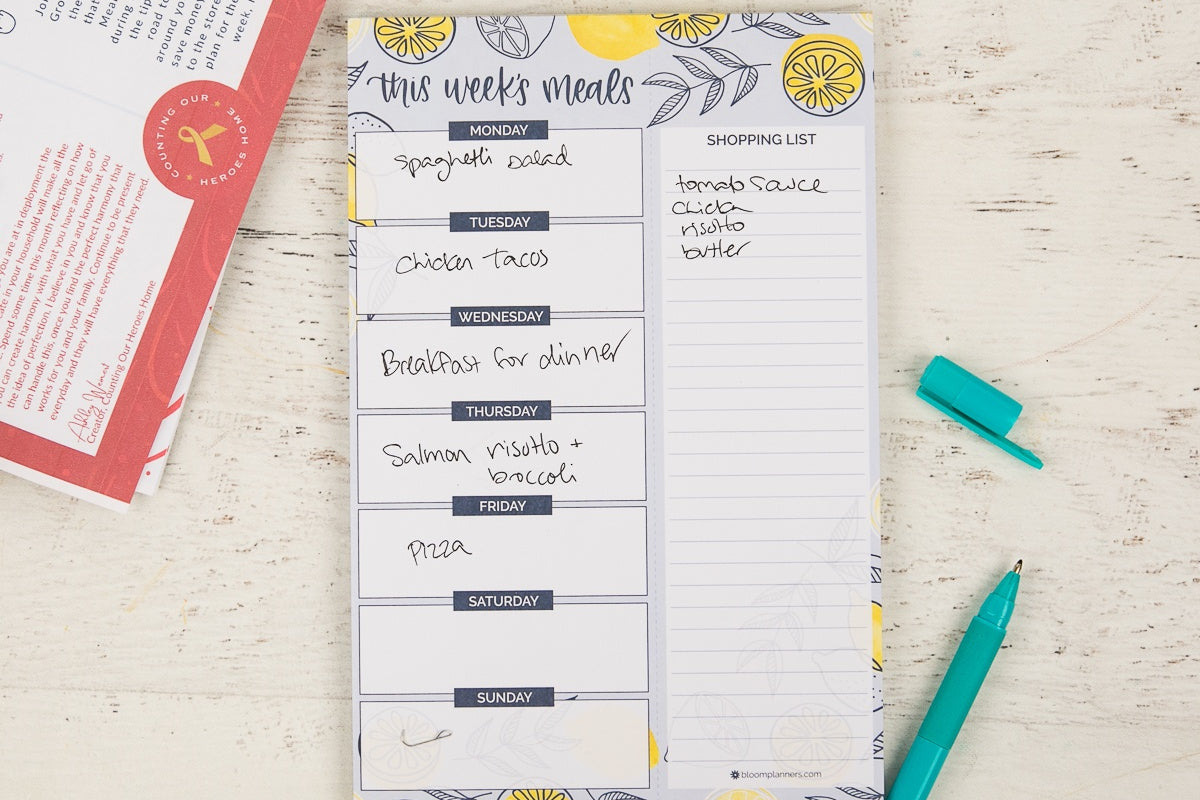 during
the tip
road to
around you
save money
to the store
plan for the
week.
COUNTING OUR
HEROES HOME
you are at in deployment the
in your household will make all the
Spend some time this month reflecting on how
you can create harmony with what you have and let go of
the idea of perfection. I believe in you and know that you
can handle this, once you find the perfect harmony that
works for you and your family. Continue to be present
everyday and they will have everything that they need.
Ashley
Creator, Counting Our Heroes Home
this week's meals
MONDAY
spaghetti salad
TUESDAY
Chicken tacos
WEDNESDAY
Breakfast for dinner
THURSDAY
Salmon risotto +
broccoli
FRIDAY
pizza
SATURDAY
SUNDAY
SHOPPING LIST
tomato sauce
chicken
risotto
butter
bloomplanners.com